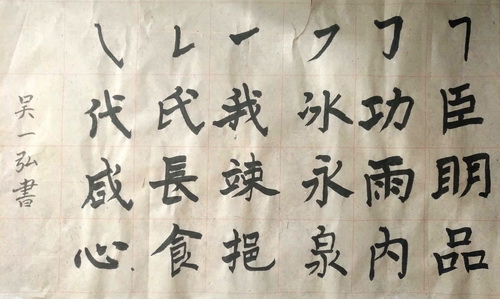 ㇕臣明品
㇆功雨内
㇇冰永泉
㇐我竦挹
㇙氏長食
㇂代咸心
吴一弘書